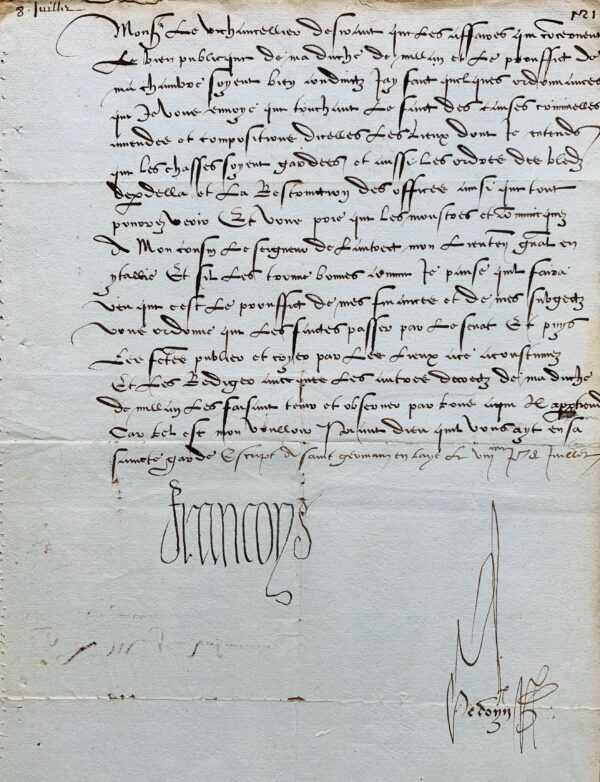 8. Juillet
Mons. Le vichancellier desirant que les affaires qui concernent
Le bien publicque de ma duche de millan et Le prouffict de
ma chambre soyent bien conduictz Jay faict quelques ordonnances
que Je vous envoye qui touchant Le faict des causes
amendes et compositions dicelles Les Lieux dont Je entends
que les chasses soyent gardees et aussi les ordres des bledz
et La des offices ainsi que tout
pourrez veoir Et vous prie que les monstres et communicquez
A Mon cousin Le seigneur de Lautrect mon Lieuten gnal en
ytallie Et sil Les trouve bonnes comme Je panse quil faira
veu que cest Le prouffict de mes finances et de mes subgectz
vous ordonne que Les faictes passer par Le senat Et puys
Les fetes publier et cryer par Les Lieux acoustumez
Et Les Rediger avecques Les autres decretz de ma duche
de millan Les faisant tenir et observer par tous ainsi Il appartend
Car tel est mon voulloir Priant dieu quil vous ayt en sa
saincte garde Escript A sainct germain en laye Le viii Jo. de Juillet
Francoys